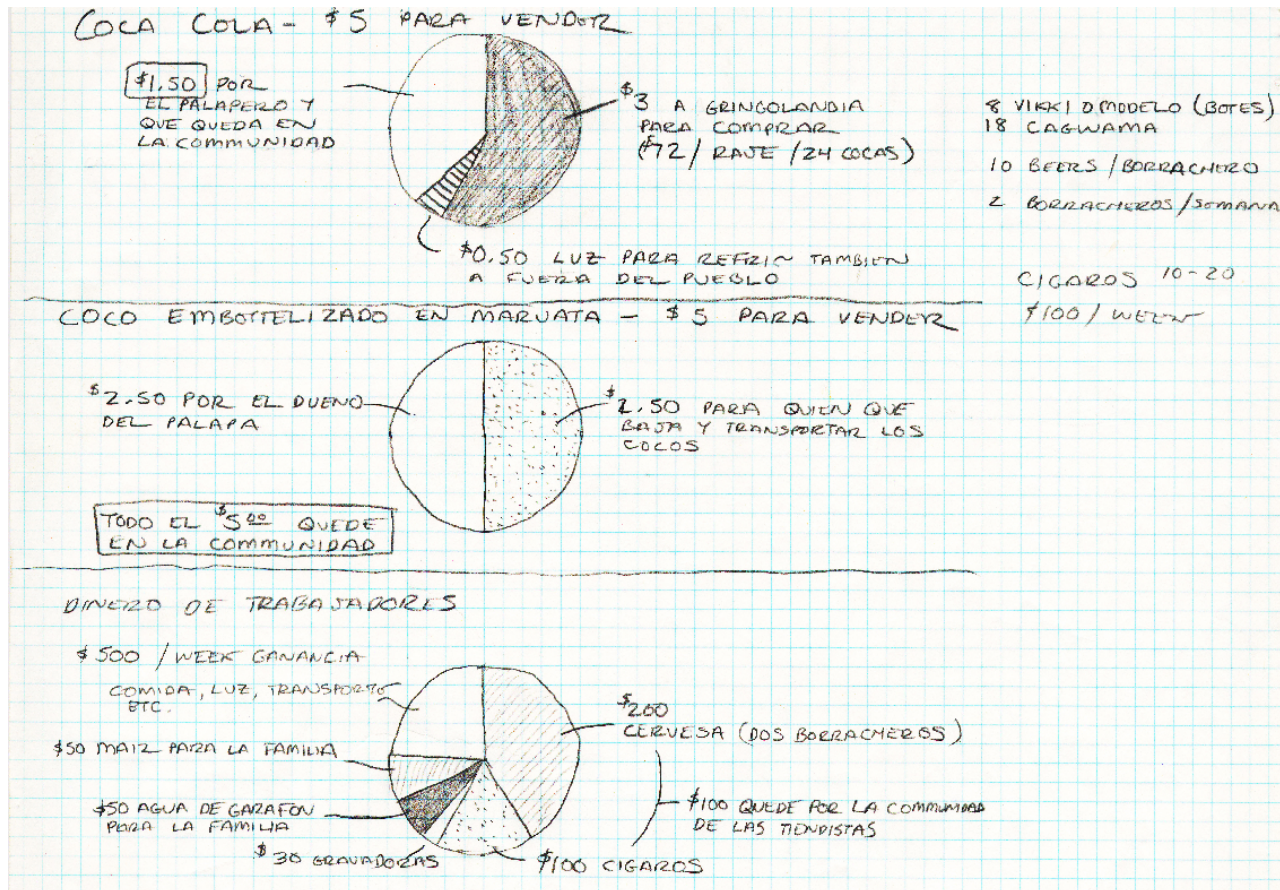 COCA COLA - $5 PARA VENDER
$1.50 POR
EL PALAPERO Y
QUE QUEDA EN
LA COMMUNIDAD
$3 A GRINGOLANDIA
PARA COMPRAR
($72 / RAJE / 24 COCAS)
$0.50 LUZ PARA REFRIN TAMBIEN
A FUERA DEL PUEBLO
8 VIKKI O MODELO (BOTES)
18 CAGWAMA
10 BEERS / BORRACHERO
2 BORRACHEROS / SEMANA
CIGAROS 10-20
$100 / WEEK
COCO EMBOTTELIZADO EN MARUATA - $5 PARA VENDER
$2.50 POR EL DUENO
DEL PALAPA
$2.50 PARA QUIEN QUE
BAJA Y TRANSPORTAR LOS
COCOS
TODO EL $5.00 QUEDE
EN LA COMMUNIDAD
DINERO DE TRABAJADORES
$500 / WEEK GANANCIA
COMIDA, LUZ, TRANSPORTO
ETC.
$50 MAIZ PARA LA FAMILIA
$50 AGUA DE GARAFON
PARA LA FAMILIA
$30 GRAVADORAS
$100 CIGAROS
$200
CERVESA (DOS BORRACHEROS)
$100 QUEDE POR LA COMMUNIDAD
DE LAS TIENDISTAS